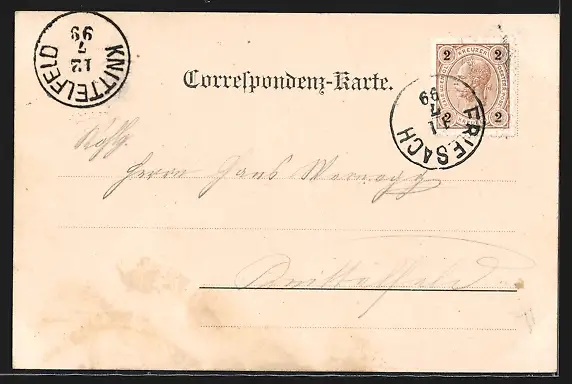 KNITTELFELD
12
7
99
Correspondenz-Karte.
2 KREUZER 2
2 2
FRIESACH
11
7
99
Herrn Hans
Knittelfeld